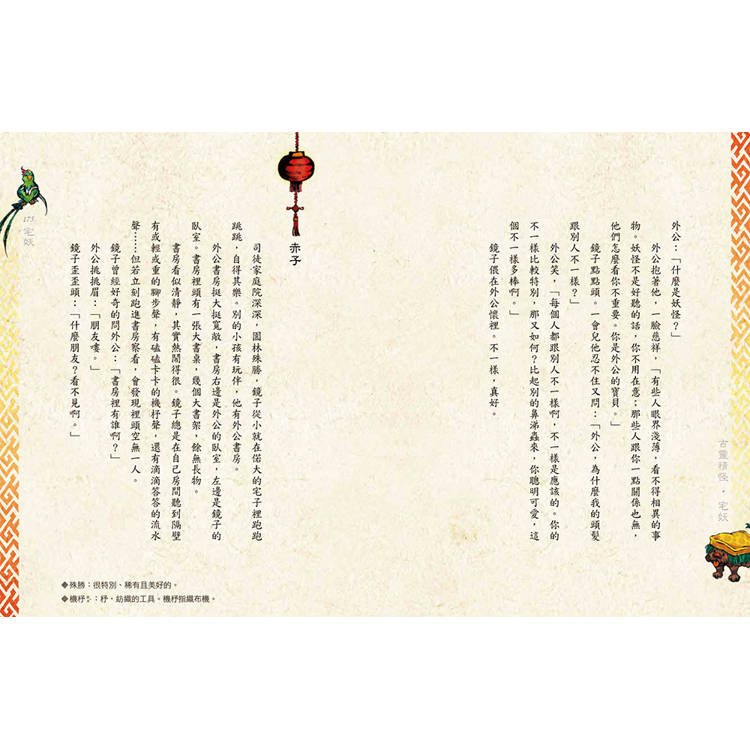 外公：「什麼是妖怪？」
外公抱著他，一臉慈祥，「有些人眼界淺薄，看不得相異的事
物。妖怪不是好聽的話，你不用在意；那些人跟你一點關係也無，
他們怎麼看你不重要。你是外公的寶貝。」
鏡子點點頭。一會兒他忍不住又問：「外公，為什麼我的頭髮
跟別人不一樣？」
外公笑，「每個人都跟別人不一樣啊，不一樣是應該的。你的
不一樣比較特別，那又如何？比起別的鼻涕蟲來，你聰明可愛，這
個不一樣多棒啊。」
鏡子偎在外公懷裡。不一樣，真好。
古靈精怪．宅妖
赤子
司徒家庭院深深，園林殊勝，鏡子從小就在偌大的宅子裡跑跑
跳跳，自得其樂。別的小孩有玩伴，他有外公書房。
外公書房挺大挺寬敞，書房右邊是外公的臥室，左邊是鏡子的
臥室。書房裡頭有一張大書桌，幾個大書架，餘無長物。
書房看似清靜，其實熱鬧得很。鏡子總是在自己房間聽到隔壁
有或輕或重的腳步聲，有磕磕卡卡的機杼聲，還有滴滴答答的流水
聲……但若立刻跑進書房察看，會發現裡頭空無一人。
鏡子曾經好奇的問外公：「書房裡有誰啊？」
外公挑挑眉：「朋友嘍。」
鏡子歪歪頭：「什麼朋友？看不見啊。」
◆殊勝：很特別、稀有且美好的。
◆機杼ㄓㄨˋ：杼，紡織的工具。機杼指織布機。
宅妖